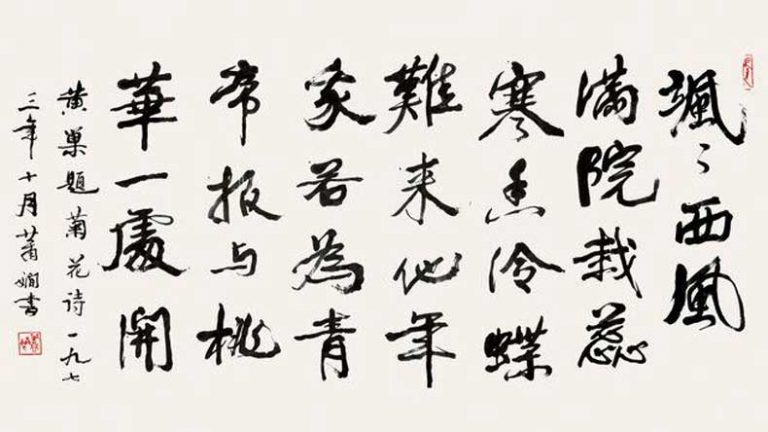 颯々西風
满院栽蕊
寒香冷蝶
難来他年
我若為青
帝报与桃
華一處開
黄巢题菊花诗一九七
三年十月萧娴书